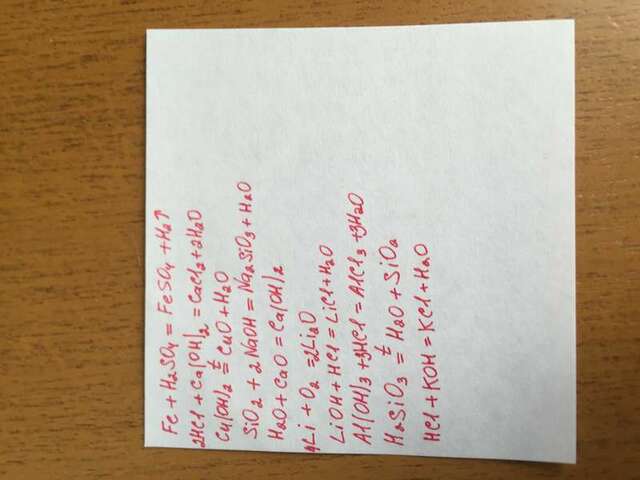 Fe + H2SO4 = FeSO4 + H2↑
2HCl + Ca(OH)2 = CaCl2 + 2H2O
Cu(OH)2 t= CuO + H2O
SiO2 + 2NaOH = Na2SiO3 + H2O
H2O + CaO = Ca(OH)2
4Li + O2 = 2Li2O
LiOH + HCl = LiCl + H2O
Al(OH)3 + 3HCl = AlCl3 + 3H2O
H2SiO3 t= H2O + SiO2
HCl + KOH = KCl + H2O